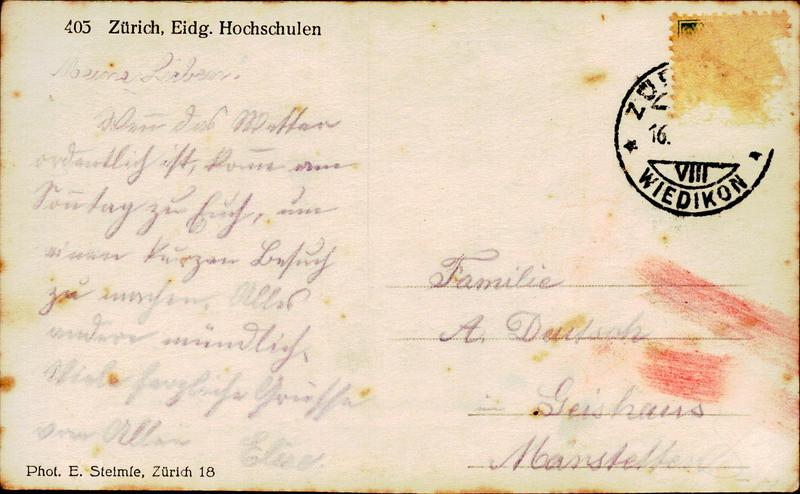 405 Zürich, Eidg. Hochschulen
Meine Lieben!
Wenn das Wetter
ordentlich ist, komme am
Sonntag zu Euch, um
einen kurzen Besuch
zu machen. Alles
andere mündlich.
Viele herzliche Grüsse
von Allen
Familie
A. Deutsch
in Geishaus
Phot. E. Steimle, Zürich 18
16.
VIII
WIEDIKON